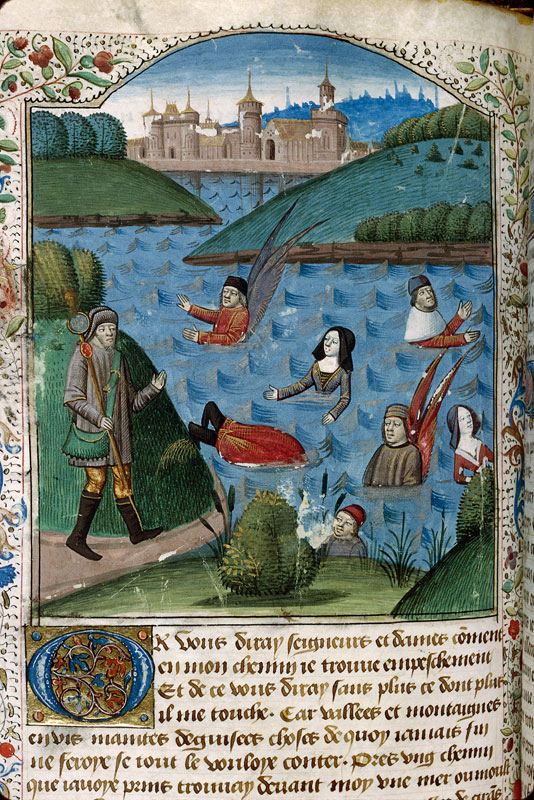 OR Vous diray seigneurs et dames cōment
en mon chemin ie trouue empeschement
Et de ce vous diray sans plus ce dont plus
il me touche. Car vallees et montaignes
en vis maintes deguisees choses de quoy iamais fin
ne feroye se tout le vouloye conter. Pres vng chemin
que iauoye prins trouuay deuant moy vne mer ou moult